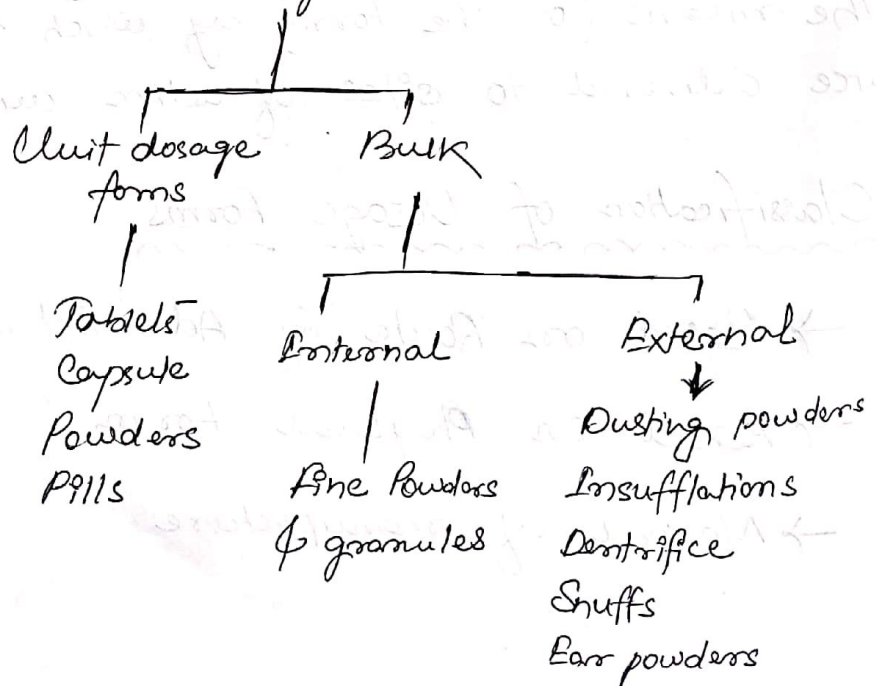 Unit dosage Bulk
forms
Tablets
Capsule
Powders
Pills
Internal
Fine Powders
& granules
External
Dusting powders
Insufflations
Dentrifice
Snuffs
Ear powders